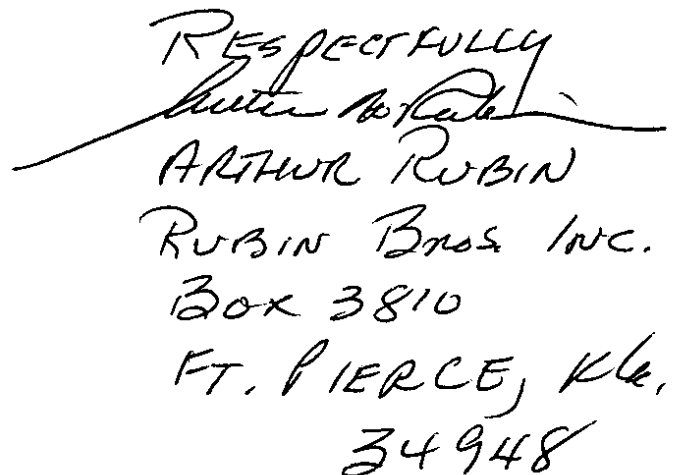 RESPECTFULLY
ARTHUR RUBIN
RUBIN BROS. INC.
BOX 3810
FT. PIERCE, Fla.
34948